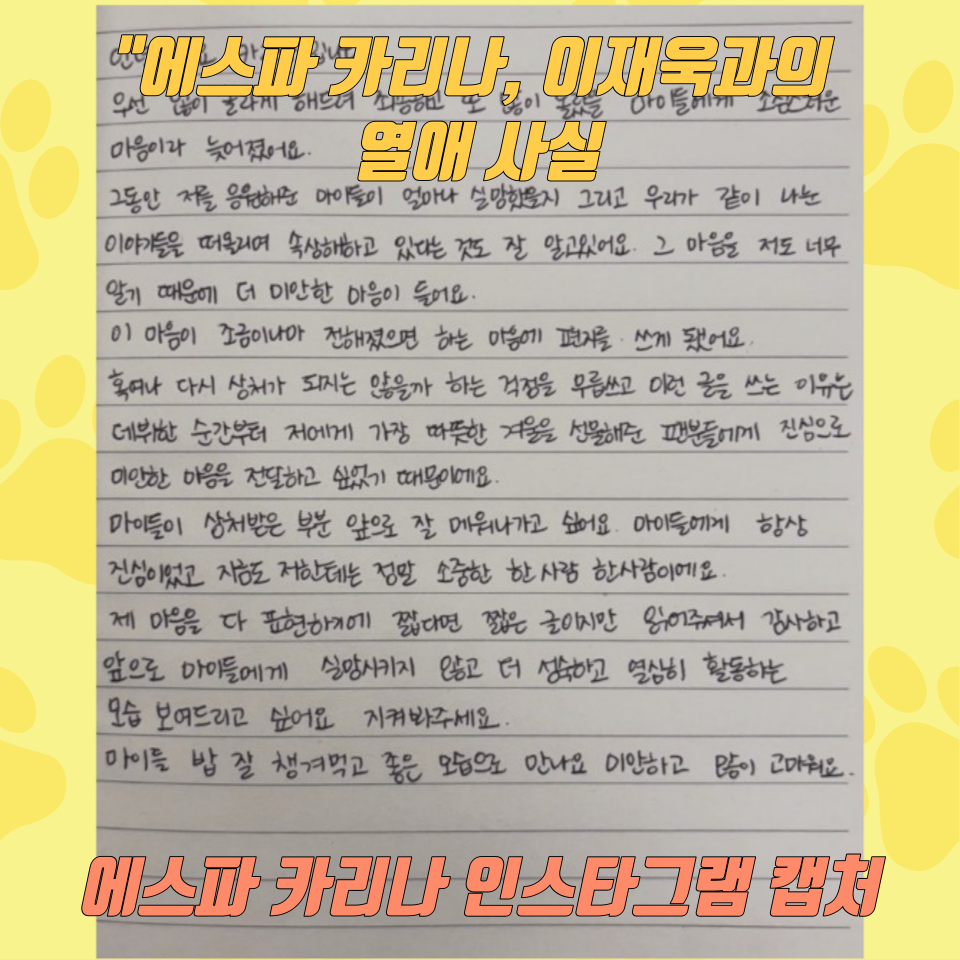 "에스파 카리나, 이재욱과의
열애 사실
우선 많이 놀라게 해드려 죄송하고 또 많이 놀랐을 마이들에게 조심스러운
마음이라 늦어졌어요.
그동안 저를 응원해준 마이들이 얼마나 실망했을지 그리고 우리가 같이 나눈
이야기들을 떠올리며 속상해하고 있다는 것도 잘 알고있어요. 그 마음을 저도 너무
알기 때문에 더 미안한 마음이 들어요.
이 마음이 조금이나마 전해졌으면 하는 마음에 편지를 쓰게 됐어요.
혹여나 다시 상처가 되지는 않을까 하는 걱정을 무릅쓰고 이런 글을 쓰는 이유는
데뷔한 순간부터 저에게 가장 따뜻한 겨울을 선물해준 팬분들에게 진심으로
미안한 마음을 전달하고 싶었기 때문이에요.
마이들이 상처받은 부분 앞으로 잘 메워나가고 싶어요. 마이들에게 항상
진심이었고 지금도 저한테는 정말 소중한 한 사람 한사람이에요.
제 마음을 다 표현하기에 짧다면 짧은 글이지만 읽어주셔서 감사하고
앞으로 마이들에게 실망시키지 않고 더 성숙하고 열심히 활동하는
모습 보여드리고 싶어요 지켜봐주세요.
마이들 밥 잘 챙겨먹고 좋은 모습으로 만나요 미안하고 많이 고마워요.
에스파 카리나 인스타그램 캡처